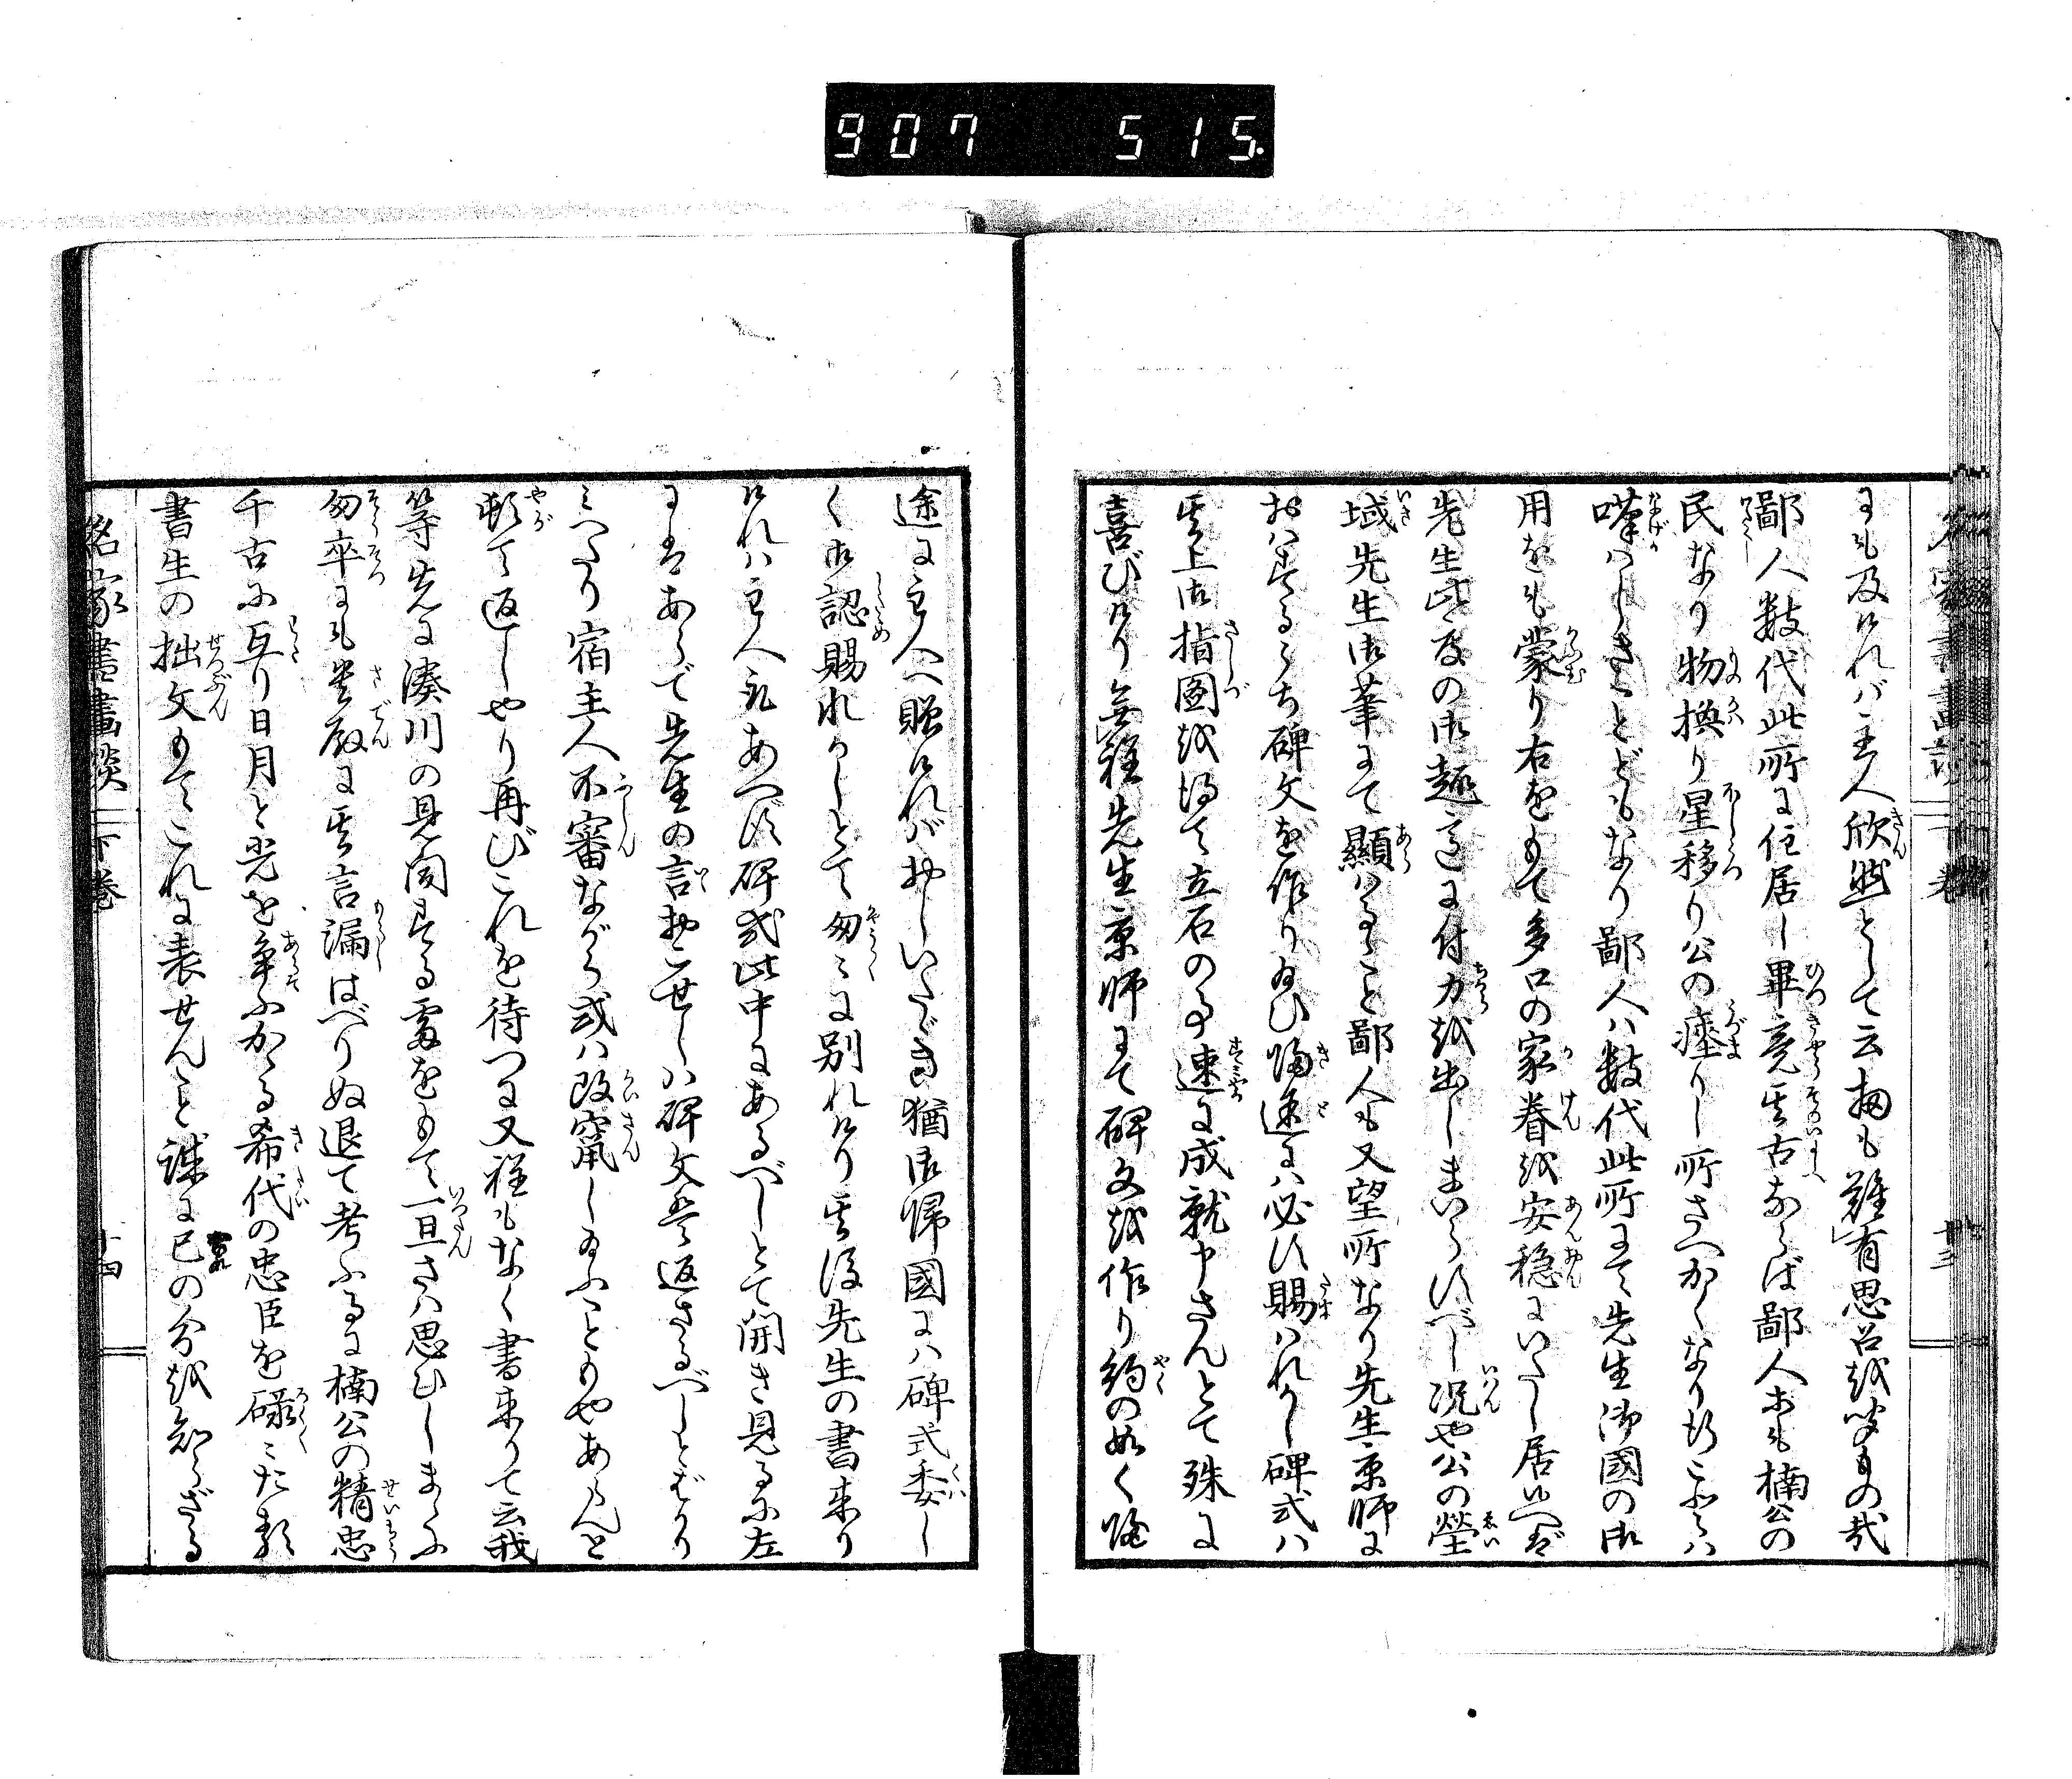 907 515.
にも及けれバ主人欣然として云扨も難有思召を承るもの哉
鄙人数代此所に住居し畢竟其古ならば鄙人等も楠公の
民なり物換り星移り公の瘞りし所さへかくなり行こふハ
嘆ハしきことどもなり鄙人ハ数代此所にて先生御國の御
用をも蒙り右をもて多口の家眷を安穏にいたし居候へば
先生此度の御趣意に付力を出しまいらすべし况や公の塋
域先生御筆にて顯ハるゝこと鄙人も又望所なり先生京師に
おハするうち碑文を作り給ひ帰途にハ必ず賜ハれかし碑式ハ
其上御指圖を得て立石の事速に成就申さんとて殊に
喜びけり無程先生京師にて碑文を作り約の如く帰
途に主人へ贈けれバおしいたゞき猶御帰國にハ碑式委し
く御認賜れかしとて匆々に別れけり其後先生の書来り
けれハ主人取あへず碑式此中にあるべしとて開き見るに左
にはあらで先生の言おこせしハ碑文是返さるべしとばかり
こへたり宿主人不審ながら或ハ改竄し給ふことのやあらんと
頓て返しやり再びこれを待つに又程もなく書来りて云我
等先に湊川の見聞する處をもて一旦さハ思ひしまゝに
匆卒にも貴殿に其言漏はべりぬ退て考ふるに楠公の精忠
千古に亙り日月と光を争ふかゝる希代の忠臣を碌々た類
書生の拙文もてこれに表せんこと誠に己の分を知らざる
名家書畫談 下巻 十三
名家書畫談 下巻 十四